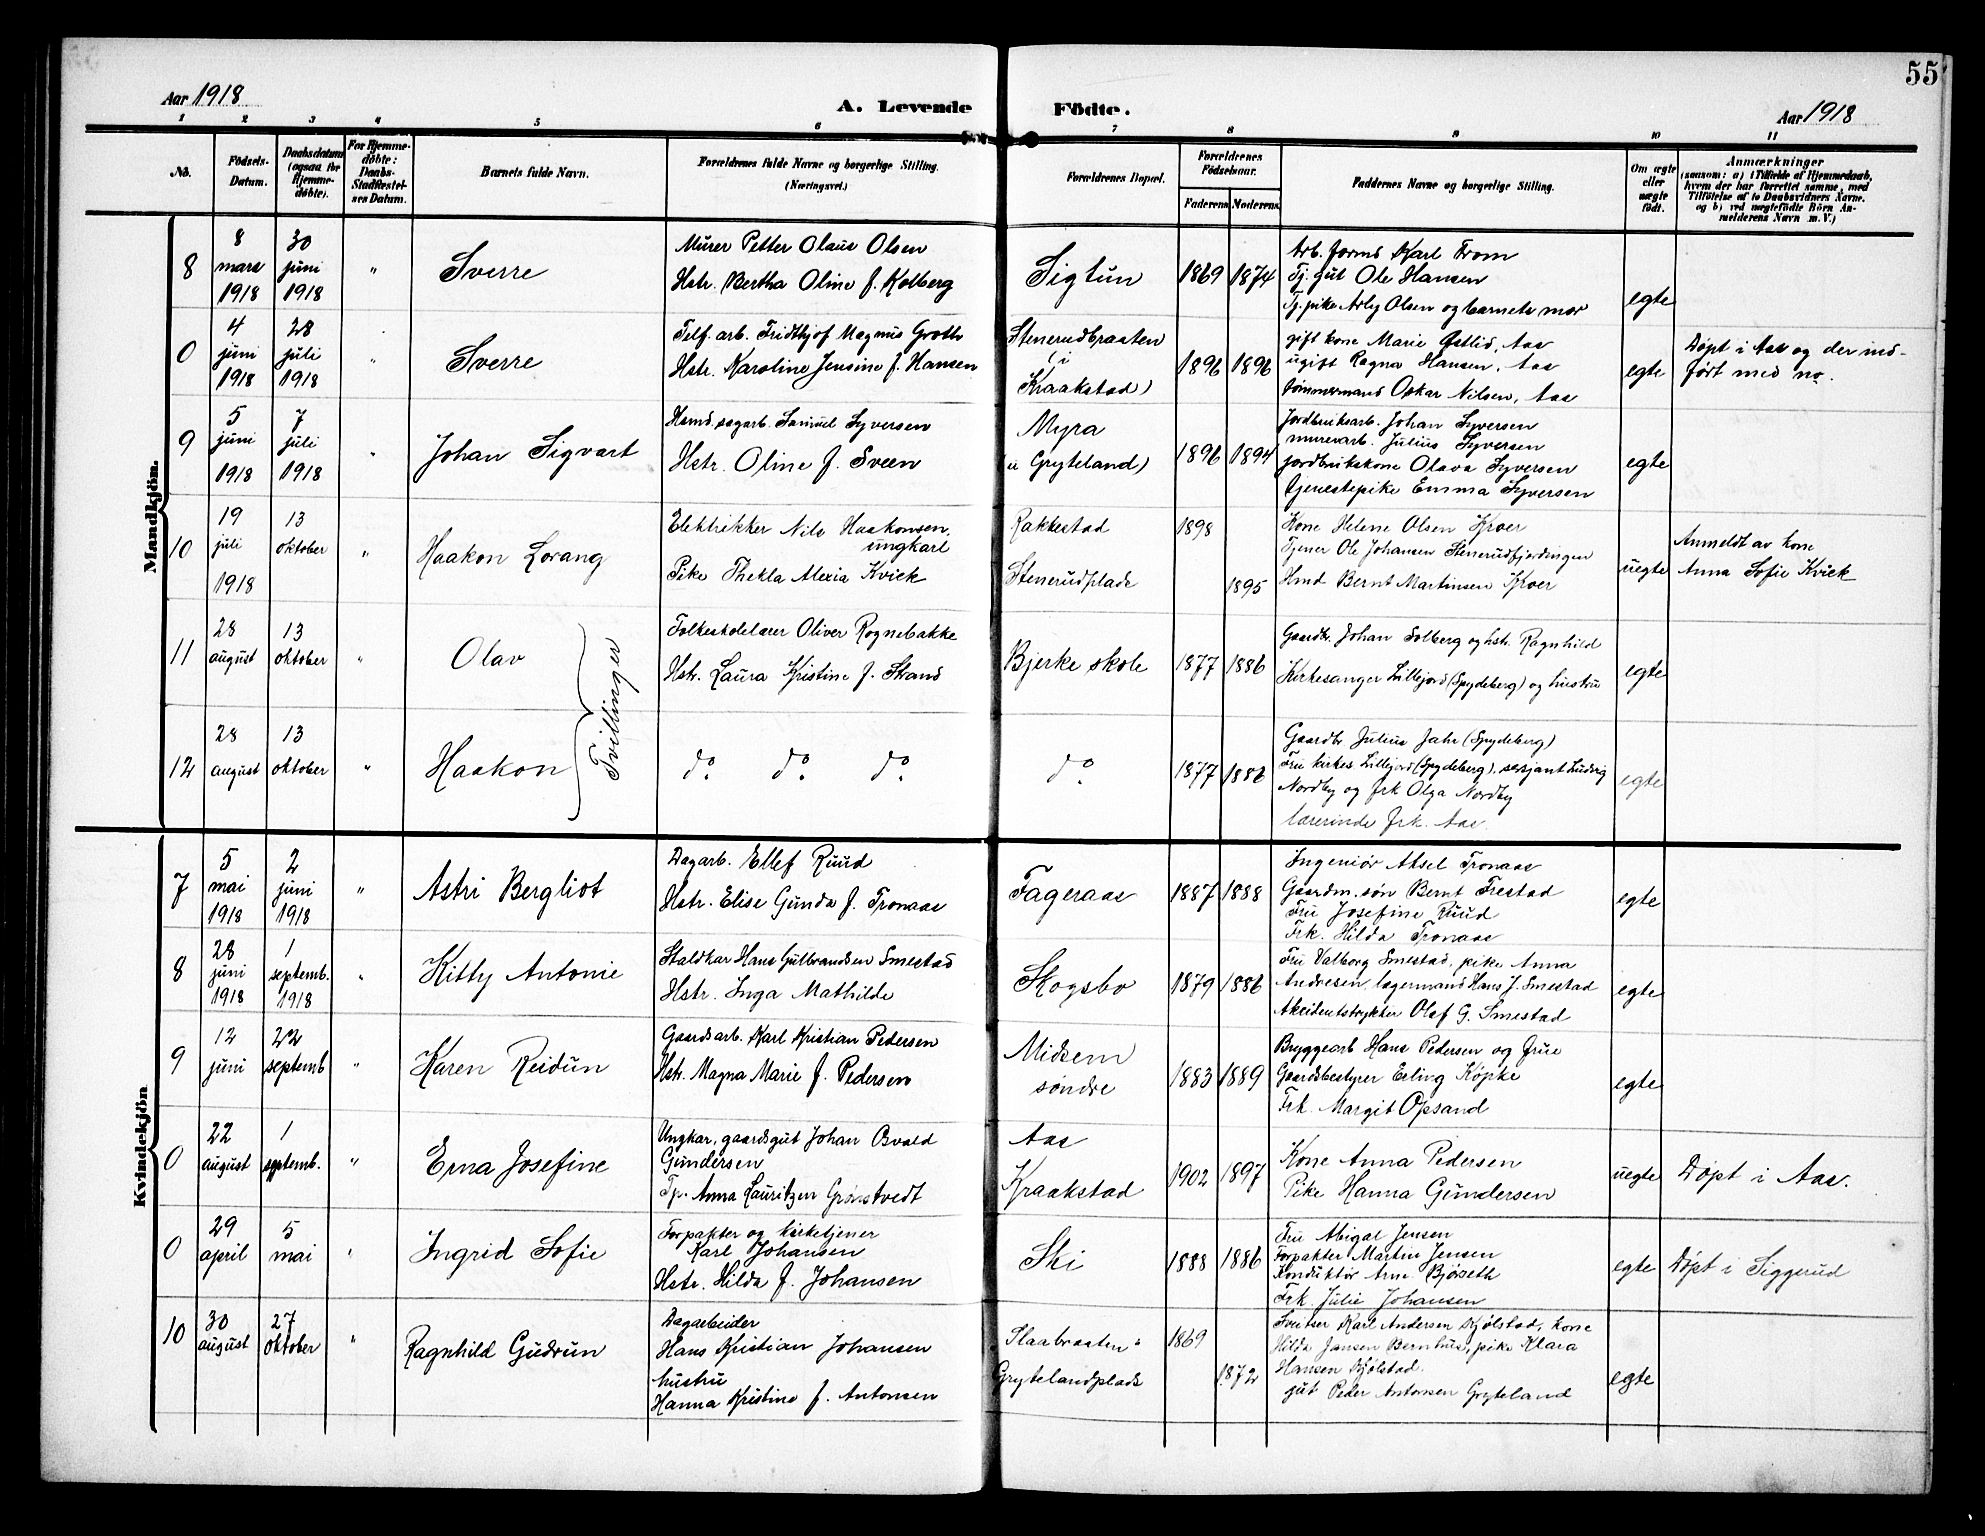 55
Aar 1918
A. Levende Födte.
Aar 1918
1 2 3 4 5 6 7 8 9 10 11
No.
Födsels-
Datum.
Daabsdatum
(ogsaa for
Hjemme-
döbte).
For Hjemme-
döbte:
Daabs-
Stadfæstel-
ses Datum.
Barnets fulde Navn.
Forældrenes fulde Navne og borgerlige Stilling.
(Næringsvei.)
Forældrenes Bopæl.
Forældrenes
Födselsaar.
Faderens Moderens
Faddernes Navne og borgerlige Stilling.
Om ægte
eller
uægte
födt.
Anmærkninger
(saasom: a) i Tilfælde af Hjemmedaab,
hvem der har forrettet samme, med
Tilföielse af to Daabsvidners Navne.
og b) ved uægtefödte Börn An-
melderens Navn m. V.)
Mandkjön.
8
8
mars
1918
30
juni
1918
"
Sverre
Murer Petter Olaus Olsen
Hstr. Bertha Oline f. Kolberg
Sigtun
1869 1874
Arb. form Karl From
Tj. gut Ole Hansen
Tj. pike Arby Olsen og barnets mor
egte
0
4
juni
1918
28
juli
1918
"
Sverre
Telf. arb. Fridthjof Magnus Groth
Hstr. Karoline Jensine f. Hansen
Stenerudbraaten
(i
Kraakstad)
1896 1896
gift kone Marie Østlid, Aas
ugift Ragna Hansen, Aas
tømmermand Oskar Nilsen, Aas
egte
Døpt i Aas og der ind-
ført med no.
9
5
juni
1918
7
juli
1918
"
Johan Sigvart
Hsmd. sagarb. Samuel Syversen
Hstr. Oline f. Sveen
Myra
(u Gryteland)
1896 1894
Jordbruksarb. Johan Syversen
murerarb. Julius Syversen
jordbrukskone Olava Syversen
tjenestepike Emma Syversen
egte
10
19
juli
1918
13
oktober
"
Haakon Lorang
Elektrikker Nils Haakonsen,
ungkarl
Pike Thekla Alexia Kvick
Rakkestad
Stenerudplads
1898
1895
Kone Helene Olsen Kroer
Tjener Ole Johansen Stenerudfjordingen
Hmd Bernt Martinsen Kroer
uegte
Anmeldt av kone
Anna Sofie Kvick
11
28
august
13
oktober
"
Olav
Tvillinger
Folkeskolelærer Oliver Rognebakke
Hstr. Laura Kristine f. Strand
Bjerke skole
1877 1886
Gaardbr. Johan Solberg og hstr. Ragnhild
Kirkesanger Lillejord (Spydeberg) og hustru
egte
12
28
august
13
oktober
"
Haakon
do do do
do
1877 1886
Gaardbr Julius Jahr (Spydeberg)
Fru kirkes. Lillejord (Spydeberg), sersjant Ludvig
Nordby og frk Olga Nordby
lærerinde frk. Aas
egte
Kvindekjön
7
5
mai
1918
2
juni
1918
"
Astri Bergliot
Dagarb. Ellef Ruud
Hstr. Elise Gunda f. Tronaas
Fageraas
1887 1888
Ingeniør Aksel Tronaas
Gaardm. søn Bernt Frestad
Fru Josefine Ruud
Frk. Hilda Tronaas
egte
8
28
juni
1918
1
septemb.
1918
"
Kitty Antonie
Staldkar Hans Gulbrandsen Smestad
Hstr. Inga Mathilde
Skogsbo
1879 1886
Fru Valborg Smestad, pike Anna
Andresen, lagermand Hans J. Smestad
Akcidentstrykker Olaf G. Smestad
egte
9
12
juni
22
septemb
"
Karen Reidun
Gaardsarb. Karl Kristian Pedersen
Hstr. Magna Marie f. Pedersen
Midsem
søndre
1883 1889
Bryggearb Hans Pedersen og frue
Gaardsbestyrer Erling Köpke
Frk. Margit Opsand
egte
0
22
august
1
septemb.
"
Erna Josefine
Ungkar, gaardsgut Johan Osvald
Gundersen
Tp. Anna Lauritzen Grønstvedt
Aas
Kraakstad
1902 1897
Kone Anna Pedersen
Pike Hanna Gundersen
uegte
Døpt i Aas.
0
29
april
5
mai
"
Ingrid Sofie
Forpakter og kirketjener
Karl Johansen
Hstr. Hilda f. Johansen
Ski
1888 1886
Fru Abigal Jensen
Forpakter Martin Jensen
Konduktør Arne Bjørseth
Frk. Julie Johansen
egte
Døpt i Siggerud
10
30
august
27
oktober
"
Ragnhild Gudrun
Dagarbeider
Hans Kristian Johansen
hustru
Hanna Kristine f. Antonsen
Slaabraaten
Grytelandplads
1869
1872
Sveitser Karl Andersen Kjølstad, kone
Hilda Jansen Bernhus, pike Klara
Hansen Kjølstad.
gut Peder Antonsen Gryteland
egte